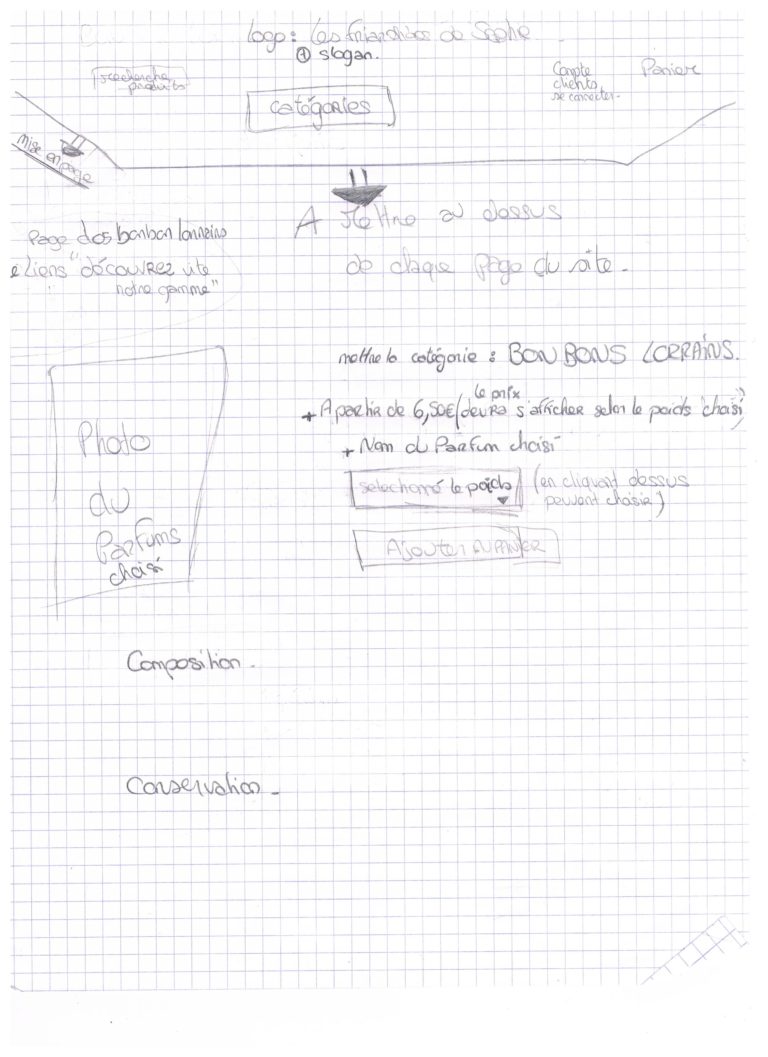 logo: Les friandises de Sophie
+ slogan.
recherche
produits
Compte
clients
se connecter.
Panier
catégories
Mise en page
A Mettre au dessus
de chaque page du site.
Page des bonbon lorrains
Liens "découvrez vite
notre gamme"
mettre la catégorie : BONBONS LORRAINS.
le prix
+ A partir de 6,50€/devra s'afficher selon le poids choisi)
+ Nom du Parfum choisi
Photo
du
Parfums
choisi
selectionné le poids
(en cliquant dessus
peuvent choisir)
Ajouter au PANIER
Composition.
Conservation.